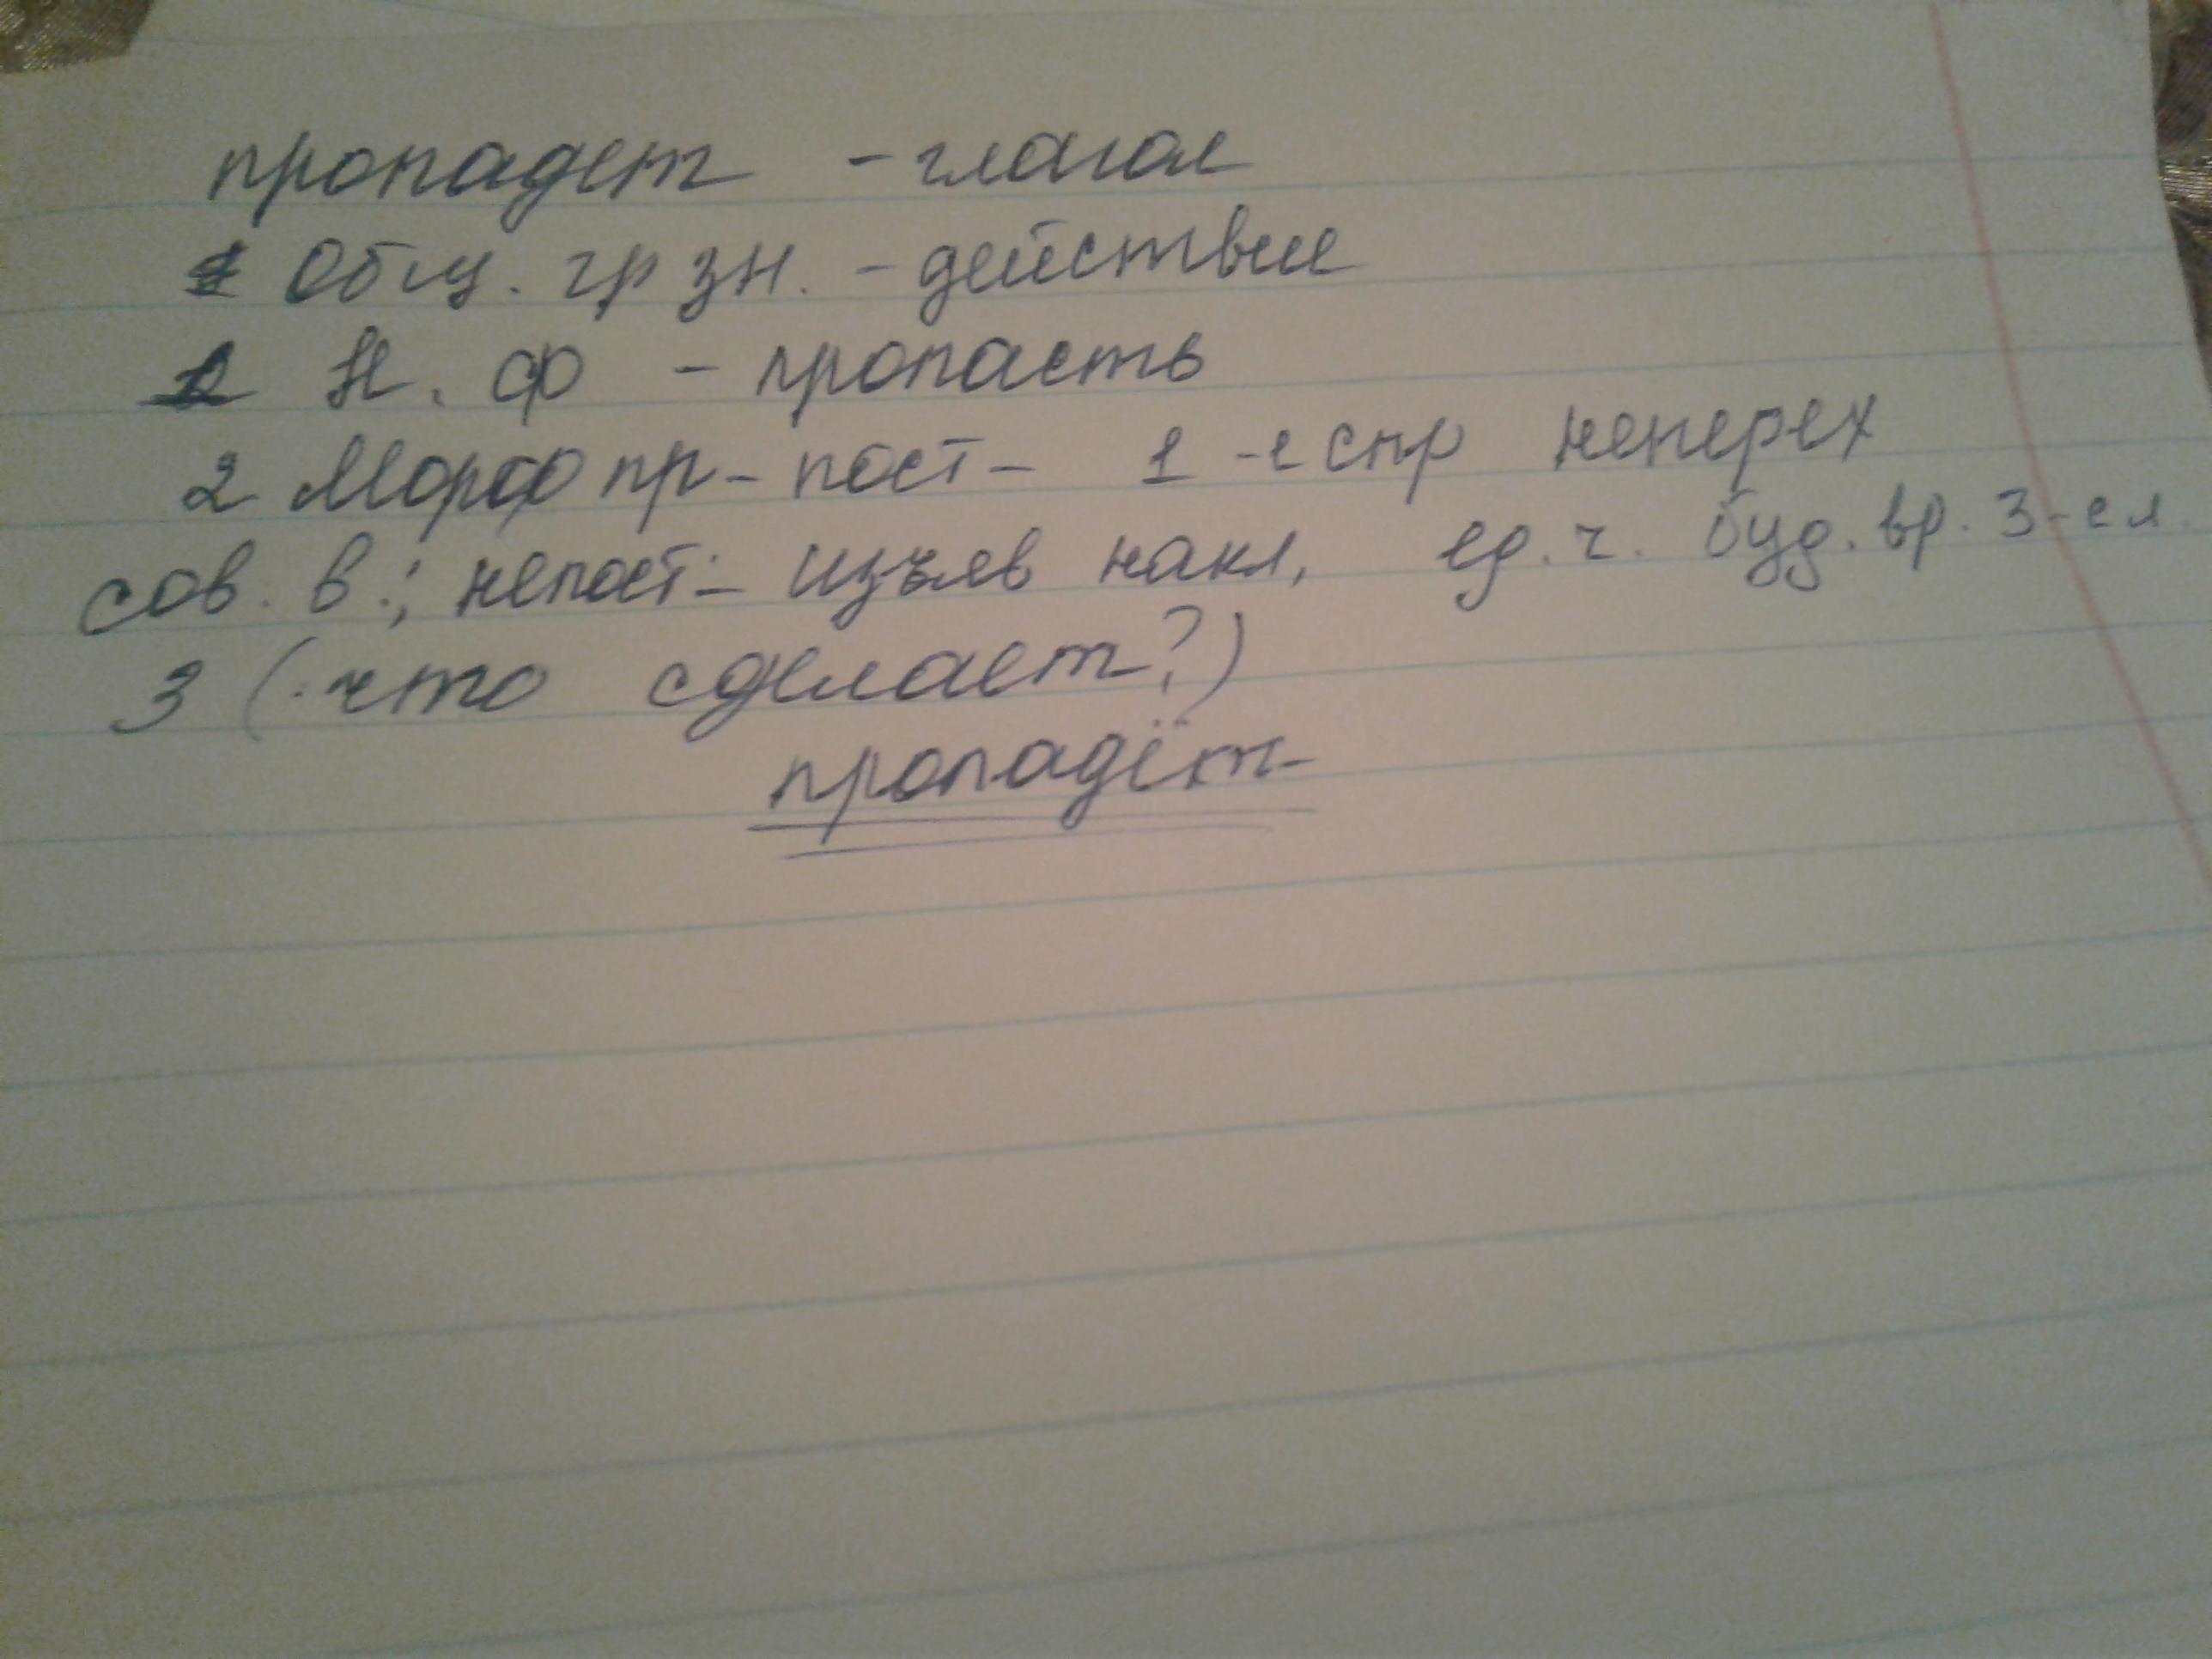 пропадет - глагол
1 Общ. гр зн. - действие
Н. ф - пропасть
2 Морф пр - пост - 1 -е спр неперех
сов. в.; непост - изъяв накл, ед. ч. буд. вр. 3-е л
3 (что сделает?)
пропадёт